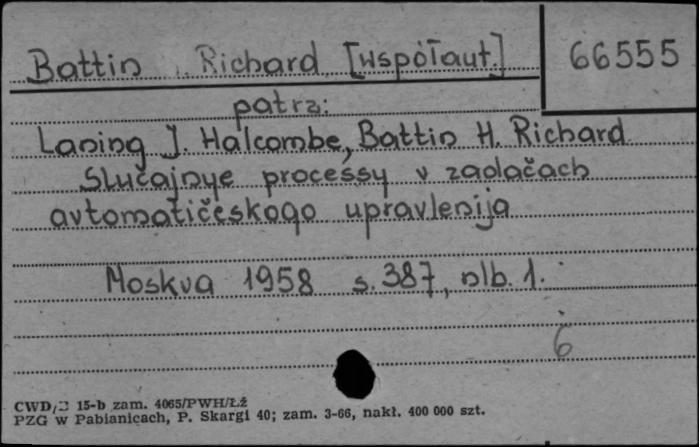 Battin Richard [współaut.]
66555
patrz:
Laning J. Halcombe, Battin H. Richard
Slučajnye processy v zadačach
avtomatičeskogo upravlenija
Moskva 1958 s. 387, nlb. 1.
6
CWD/ 15-b zam. 4065/PWH/Łź
PZG w Pabianicach, P. Skargi 40; zam. 3-66, nakł. 400 000 szt.